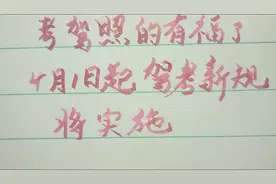 考驾照的有福了
4月1日起驾考新规
将实施